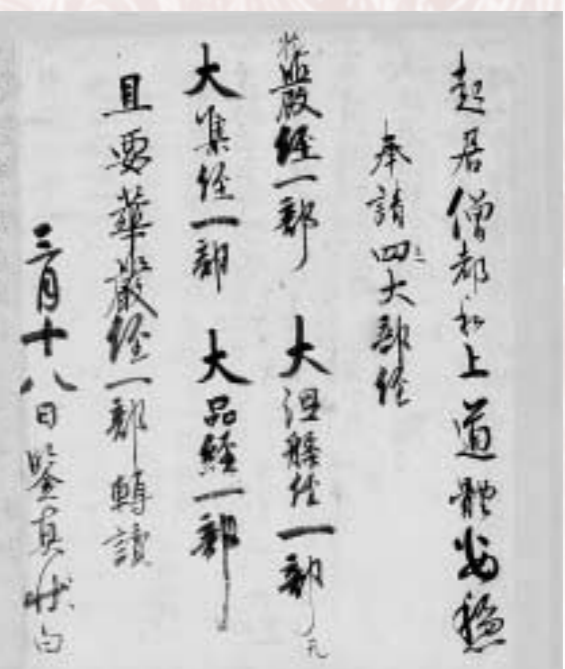 起居僧都和上道體安穩
奉請四大部經
花嚴經一部　大涅槃經一部
大集經一部　大品經一部
且要華嚴經一部轉讀
三月十八日鑒真狀白